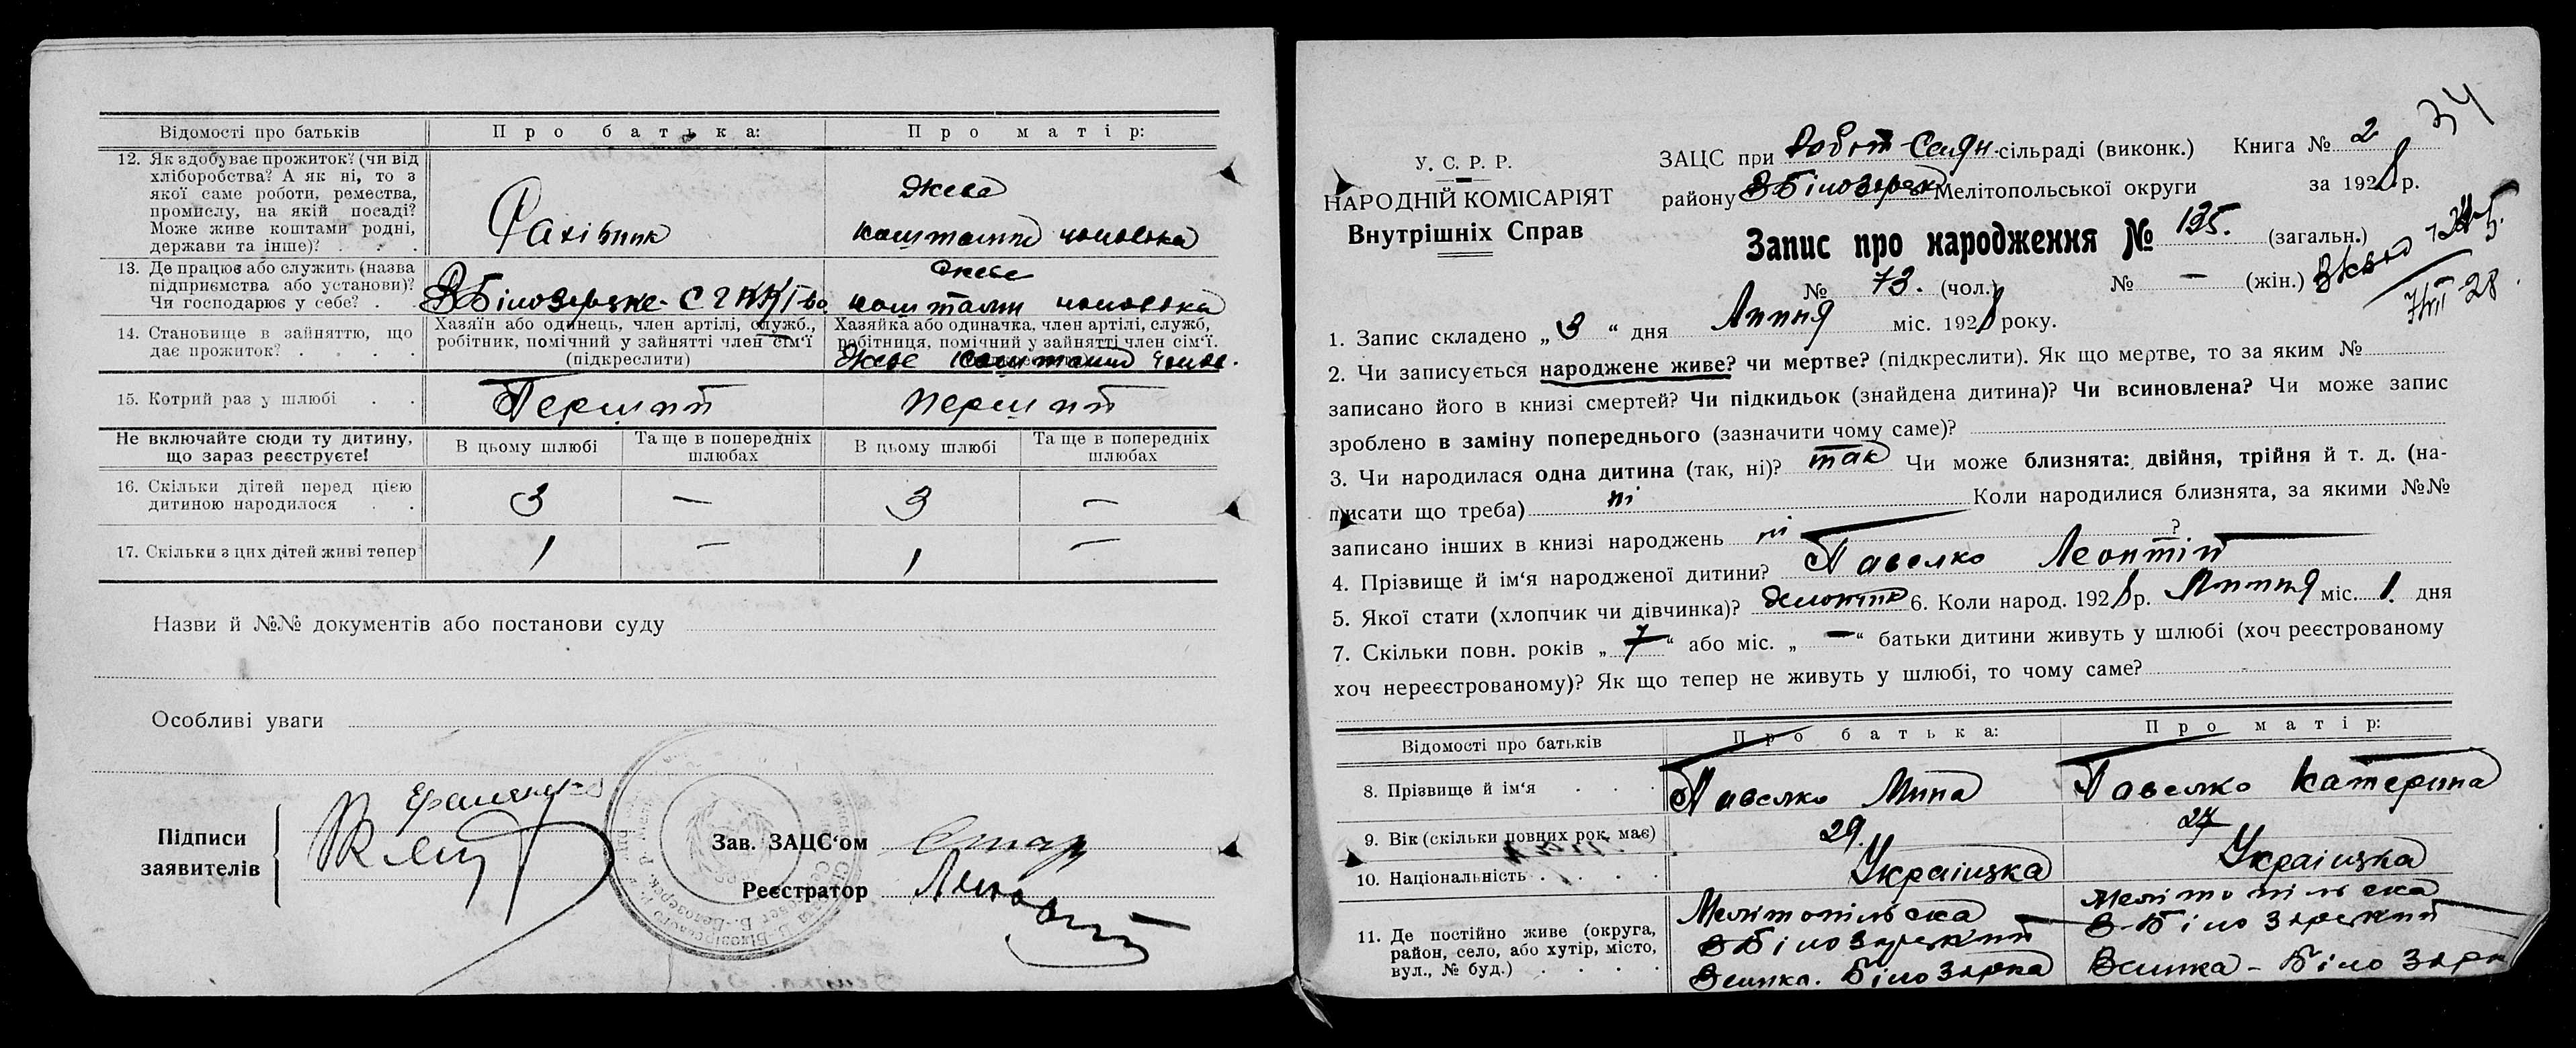 Відомості про батьків Про батька: Про матір:
12. Як здобуває прожиток? (чи від
хліборобства? А як ні, то з
якої саме роботи, ремества,
промислу, на якій посаді?
Може живе коштами родні,
держави та інше)? . . .
Фахівник
Живе
коштами чоловіка
13. Де працює або служить (назва
підприємства або установи)?
Чи господарює у себе? .
В Білозерське-
Живе
коштами чоловіка
14. Становище в зайняттю, що
дає прожиток? . . . .
Хазяїн або одинець, член артілі, служб.,
робітник, помічний у зайнятті член сім'ї
(підкреслити)
Хазяйка або одиначка, член артілі, служб,
робітниця, помічний у зайнятті член сім'ї.
Живе коштами чолов.
15. Котрий раз у шлюбі . . Перший перший
Не включайте сюди ту дитину,
що зараз реєструєте!
В цьому шлюбі Та ще в попередніх
шлюбах
В цьому шлюбі Та ще в попередніх
шлюбах
16. Скільки дітей перед цією
дитиною народилося . .
3 — 3 —
17. Скільки з цих дітей живі тепер 1 — 1 —
Назви й №№ документів або постанови суду
Особливі уваги
Підписи
заявителів
Зав. ЗАЦС'ом
Реєстратор
34
У. С. Р. Р.
НАРОДНІЙ КОМІСАРІЯТ
Внутрішніх Справ
ЗАЦС при сільраді (виконк.) Книга № 2
району В Білозерськ Мелітопольської округи за 1928 р.
Запис про народження № 135. (загальн.)
№ 73. (чол.) № — (жін.)
7/VII 28.
1. Запис складено „3“ дня Липня міс. 1928 року.
2. Чи записується народжене живе? чи мертве? (підкреслити). Як що мертве, то за яким №
записано його в книзі смертей? Чи підкидьок (знайдена дитина)? Чи всиновлена? Чи може запис
зроблено в заміну попереднього (зазначити чому саме)?
3. Чи народилася одна дитина (так, ні)? так Чи може близнята: двійня, трійня й т. д. (на-
писати що треба) ні Коли народилися близнята, за якими №№
записано інших в книзі народжень ні ?
4. Прізвище й ім'я народженої дитини? Павелко Леонтій
5. Якої стати (хлопчик чи дівчинка)? 6. Коли народ. 1928 р. Липня міс. 1. дня
7. Скільки повн. років „7“ або міс. „—“ батьки дитини живуть у шлюбі (хоч реєстрованому
хоч нереєстрованому)? Як що тепер не живуть у шлюбі, то чому саме?
Відомості про батьків Про батька: Про матір:
8. Прізвище й ім'я . . . Павелко Мина Павелко Катерина
9. Вік (скільки повних рок. має) 29. 27
10. Національність . . . . Украіцька Украіцька
11. Де постійно живе (округа,
район, село, або хутір, місто,
вул., № буд.) . . . .
Мелітопільска
В Білозерский
Велика. Білозерка
Мелітопільска
В-Білозерский
Велика-Білозерк